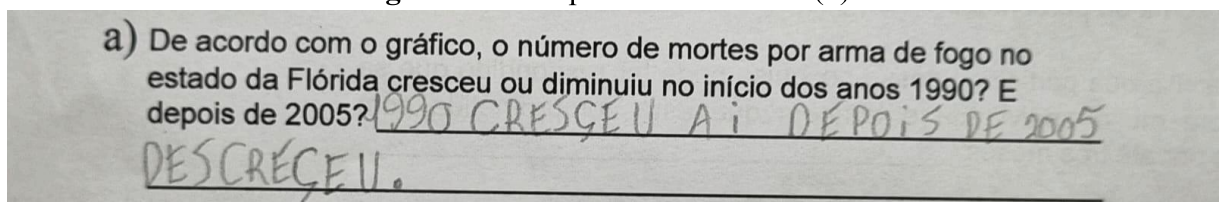 a) De acordo com o gráfico, o número de mortes por arma de fogo no
estado da Flórida cresceu ou diminuiu no início dos anos 1990? E
depois de 2005? 1990 CRESÇEU Ai DEPOiS DE 2005
DESCREÇEU.